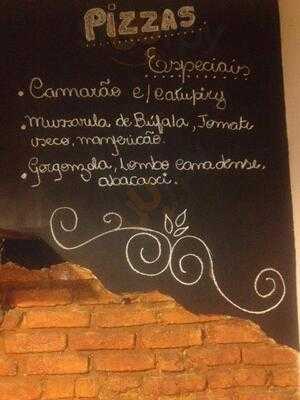 PIZZAS
Especiais
• Camarão c/ catupiry
• Mussarela de Búfala, Tomate
seco, manjericão.
• Gorgonzola, Lombo canadense,
abacaxi.